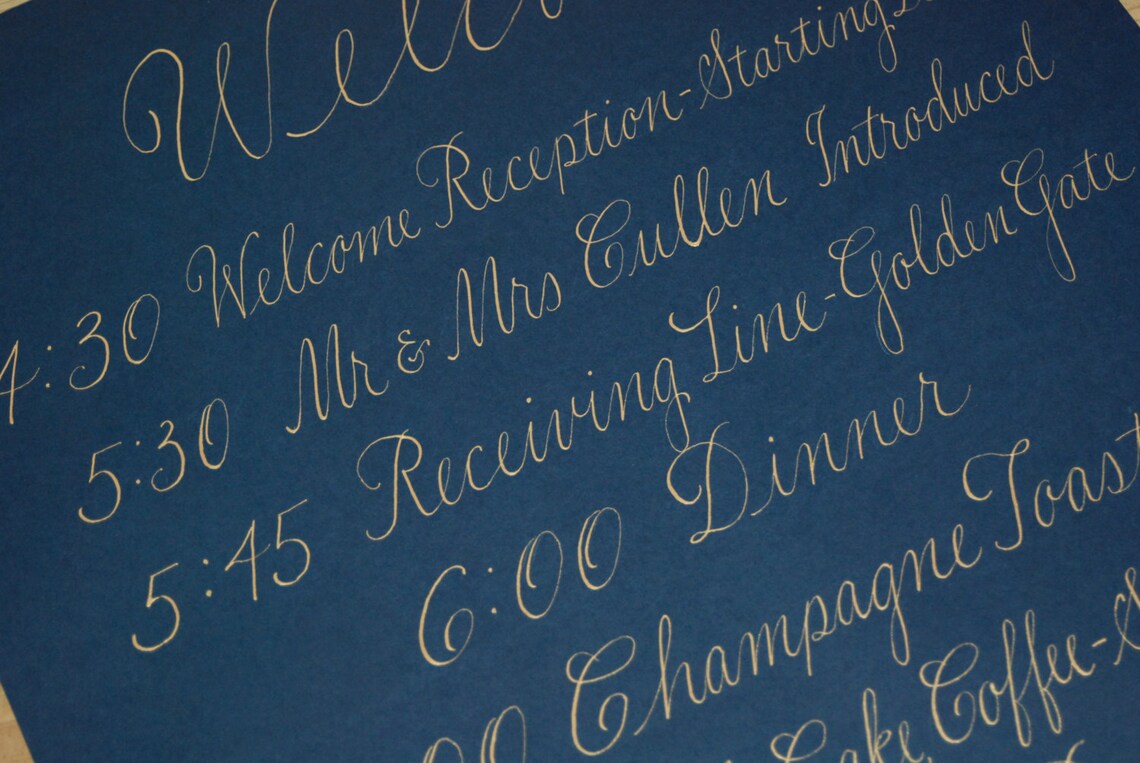 Wel
4:30 Welcome Reception-Starting
5:30 Mr & Mrs Cullen Introduced
5:45 Receiving Line-Golden Gate
6:00 Dinner
00 Champagne Toast
Cake, Coffee-S